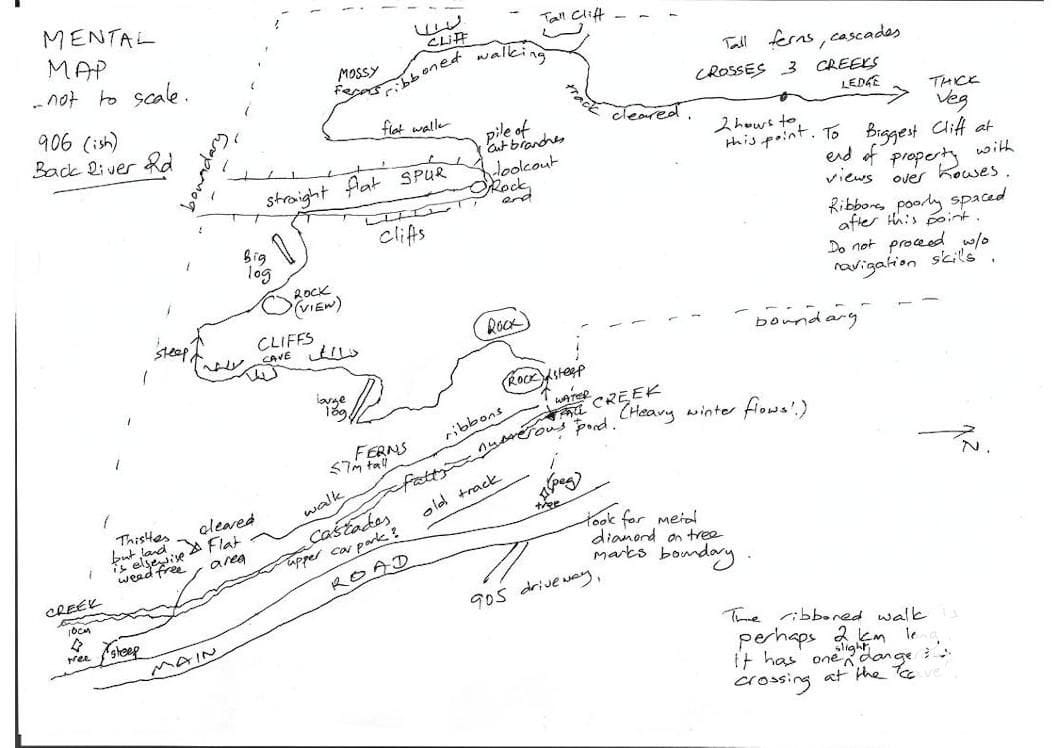 MENTAL
MAP
- not to scale.
906 (ish)
Back River Rd
CLIFF
Tall Cliff
MOSSY
Ferns
ribboned walking
track cleared.
Tall ferns, cascades
CROSSES 3 CREEKS
LEDGE
THICK
Veg
2 hours to
this point.
To Biggest Cliff at
end of property with
views over houses.
Ribbons poorly spaced
after this point.
Do not proceed w/o
navigation skils.
boundary
flat walk
pile of
cut branches
lookout
Rock
end
straight flat SPUR
Cliffs
Big
log
ROCK
(VIEW)
steep
CLIFFS
CAVE
large
log
ROCK
ROCK
steep
boundary
WATER
FALL
CREEK
(Heavy winter flows!)
N.
FERNS
<7m tall
walk
ribbons
Cascades
falls
numerous pond.
old track
upper car park?
(peg)
tree
look for metal
diamond on tree
marks boundary.
Thistles
but land
is elsewise
weed free
cleared
Flat
area
CREEK
10cm
tree
steep
MAIN ROAD
905 driveway.
The ribboned walk is
perhaps 2 km
It has one slight
crossing at the